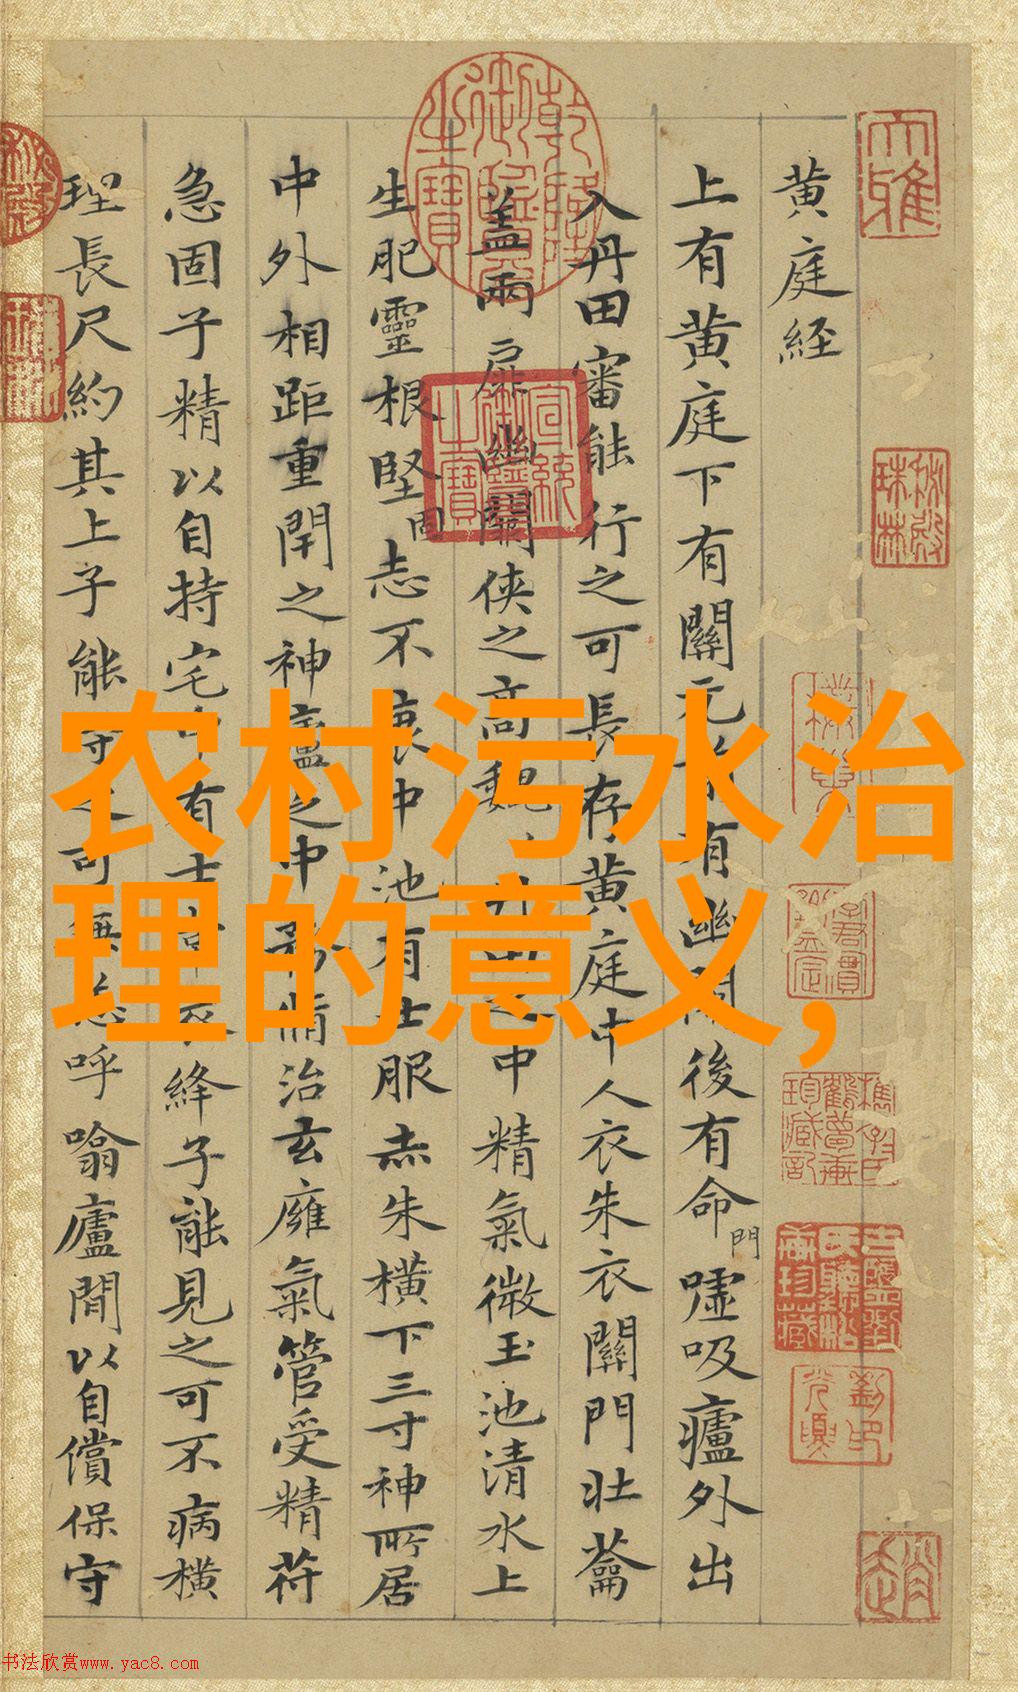 黄庭经
上有黄庭下有關元前有幽闕後有命門嘘吸廬外出
入丹田審能行之可長存黄庭中人衣朱衣關門壮蘥
盖兩扉幽關俠之高魏丹田之中精氣微玉池清水上
生肥靈根堅固志不衰中池有士服赤朱横下三寸神所居
中外相距重閇之神廬之中務脩治玄廱氣管受精苻
急固子精以自持宅中有士常衣絳子能見之可不病横
理長尺約其上子能守之可無恙呼噏廬間以自償保守
农村污水治
理的意义,
大雅
宣統御覽之寶
乾隆御覽之寶
书法欣赏www.yac8.com